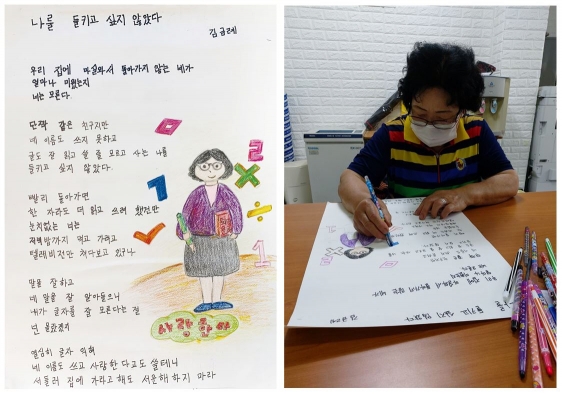 나를 들키고 싶지 않았다
김금례
우리 집에 마실와서 돌아가지 않는 네가
얼마나 미웠는지
너는 모른다.
단짝 같은 친구지만
네 이름도 쓰지 못하고
글도 잘 읽고 쓸 줄 모르고 사는 나를
들키고 싶지 않았다.
빨리 돌아가면
한 자라도 더 읽고 쓰려 했건만
눈치없는 너는
저녁밥까지 먹고 가려고
텔레비전만 쳐다보고 있구나
말을 잘하고
네 말을 잘 알아들으니
내가 글자를 잘 모른다는 걸
넌 몰랐겠지
열심히 글자 익혀
네 이름도 쓰고 사랑한다고도 쓸테니
서둘러 집에 가라고해도 서운해 하지 마라
사랑한다